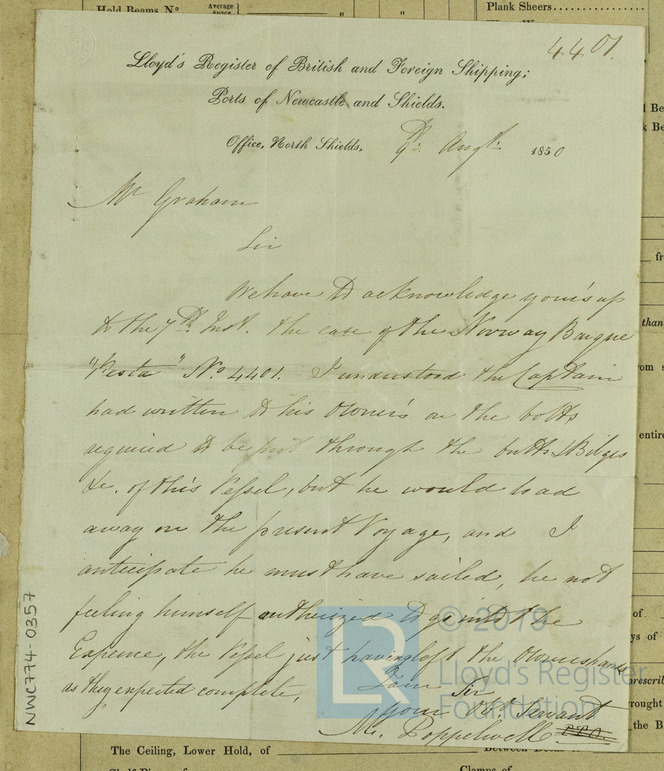 Hold Beams No
Average Space
Plank Sheers
4.4.01.
Lloyd's Register of British and Foreign Shipping;
Ports of Newcastle and Shields.
Office, North Shields, 9th Augt. 1850
Mr Graham
Sir
We have to acknowledge your's up
to the 7th Inst. the case of the Norway Barque
"Vesta" No 4401. I understood the Captain
had written to his Owner's on the bolts
required to be put through the butts & Bilges
&c. of this Vessel, but he would load
away on the present Voyage, and I
anticipate he must have sailed, he not
feeling himself authorized to go into the
Expence, the Vessel just having left the Owners hands
as they expected complete,
I am Sir
Your Servant
M. Poppelwell
NWC774-0357
© 2019
LR
Lloyd's Register
Foundation
The Ceiling, Lower Hold, of
Between Decks
Clamps of